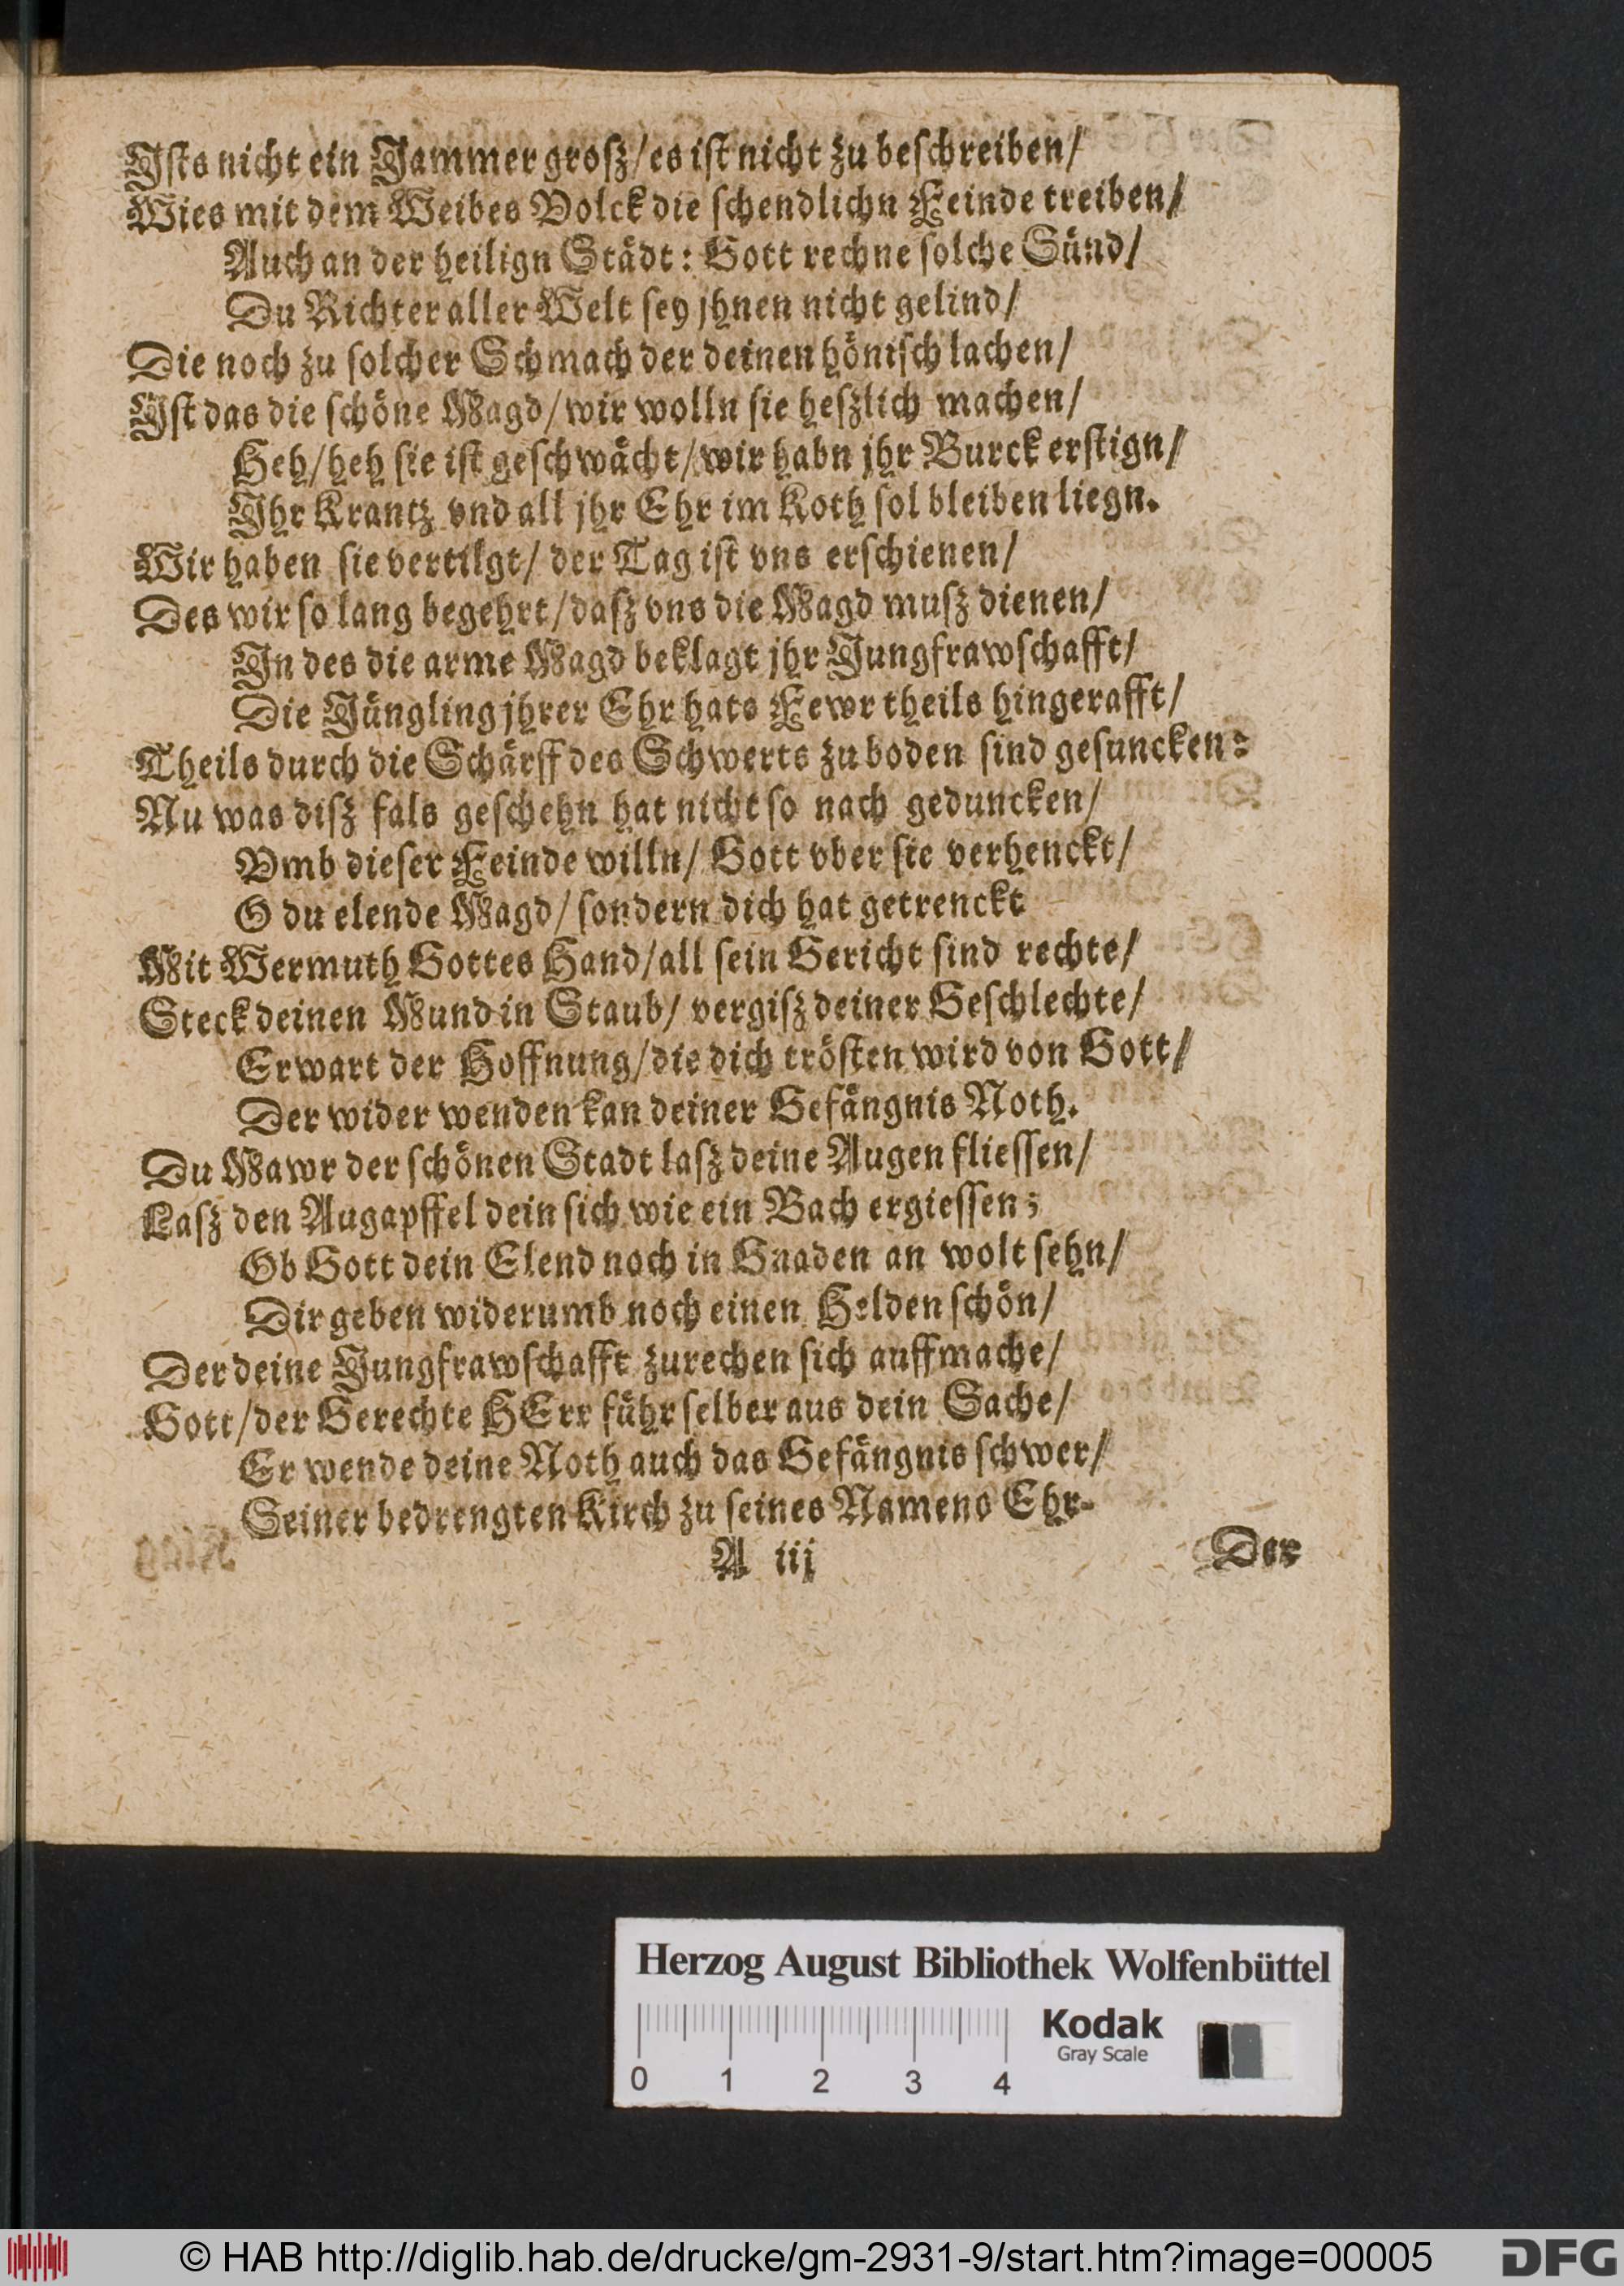 Jsts nicht ein Jammer grosz/ es ist nicht zu beschreiben/
Wies mit dem Weibes Volck die schendlichn Feinde treiben/
Auch an der heilign Städt: Gott rechne solche Sünd/
Du Richter aller Welt sey jhnen nicht gelind/
Die noch zu solcher Schmach der deinen hönisch lachen/
Jst das die schöne Magd/ wir wolln sie heszlich machen/
Heh/ heh sie ist geschwächt/ wir habn jhr Burck erstign/
Jhr Krantz vnd all jhr Ehr im Koth sol bleiben liegn.
Wir haben sie vertilgt/ der Tag ist vns erschienen/
Des wir so lang begehrt/ dasz vns die Magd musz dienen/
Jn des die arme Magd beklagt jhr Jungfrawschafft/
Die Jüngling jhrer Ehr hats Fewr theils hingerafft/
Theils durch die Schärff des Schwerts zu boden sind gesuncken:
Nu was disz fals geschehn hat nicht so nach geduncken/
Vmb dieser Feinde willn/ Gott vber sie verhenckt/
O du elende Magd/ sondern dich hat getrenckt
Mit Wermuth Gottes Hand/ all sein Gericht sind rechte/
Steck deinen Mund in Staub/ vergisz deiner Geschlechte/
Erwart der Hoffnung/ die dich trösten wird von Gott/
Der wider wenden kan deiner Gefängnis Noth.
Du Mawr der schönen Stadt lasz deine Augen fliessen/
Lasz den Augapffel dein sich wie ein Bach ergiessen;
Ob Gott dein Elend noch in Gnaden an wolt sehn/
Dir geben widerumb noch einen Helden schön/
Der deine Jungfrawschafft zurechen sich auffmache/
Gott/ der Gerechte HErr führ selber aus dein Sache/
Er wende deine Noth auch das Gefängnis schwer/
Seiner bedrengten Kirch zu seines Namens Ehr.
A iij
Der
Herzog August Bibliothek Wolfenbüttel
Kodak
Gray Scale
0 1 2 3 4
© HAB http://diglib.hab.de/drucke/gm-2931-9/start.htm?image=00005
DFG